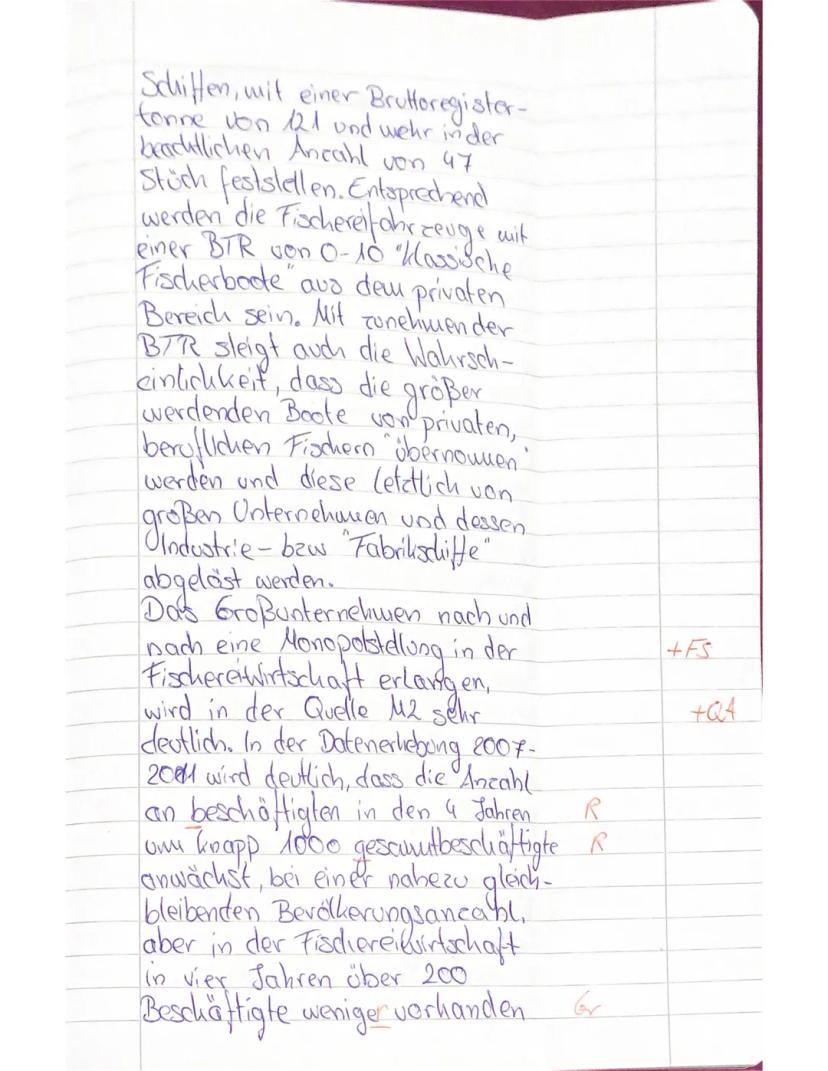 Schiffen, mit einer Bruttoregister-
tonne von 121 und mehr in der
beachtlichen Anzahl von 47
Stück feststellen. Entsprechend
werden die Fischereifahrzeuge mit
einer BTR von 0-10 "klassische
Fischerboote" aus dem privaten
Bereich sein. Mit zunehmender
BTR steigt auch die Wahrsch-
einlichkeit, dass die größer
werdenden Boote von privaten,
beruflichen Fischern "übernommen"
werden und diese letztlich von
großen Unternehmen und dessen
Industrie- bzw "Fabrikschiffe"
abgelöst werden.
Das Großunternehmen nach und
nach eine Monopolstellung in der +FS
Fischereiwirtschaft erlangen,
wird in der Quelle M2 sehr +QA
deutlich. In der Datenerhebung 2007-
2011 wird deutlich, dass die Anzahl
an beschäftigten in den 4 Jahren R
um knapp 1000 gesamtbeschäftigte R
anwächst, bei einer nahezu gleich-
bleibenden Bevölkerungsanzahl,
aber in der Fischereiwirtschaft
in vier Jahren über 200
Beschäftigte weniger vorhanden Gr